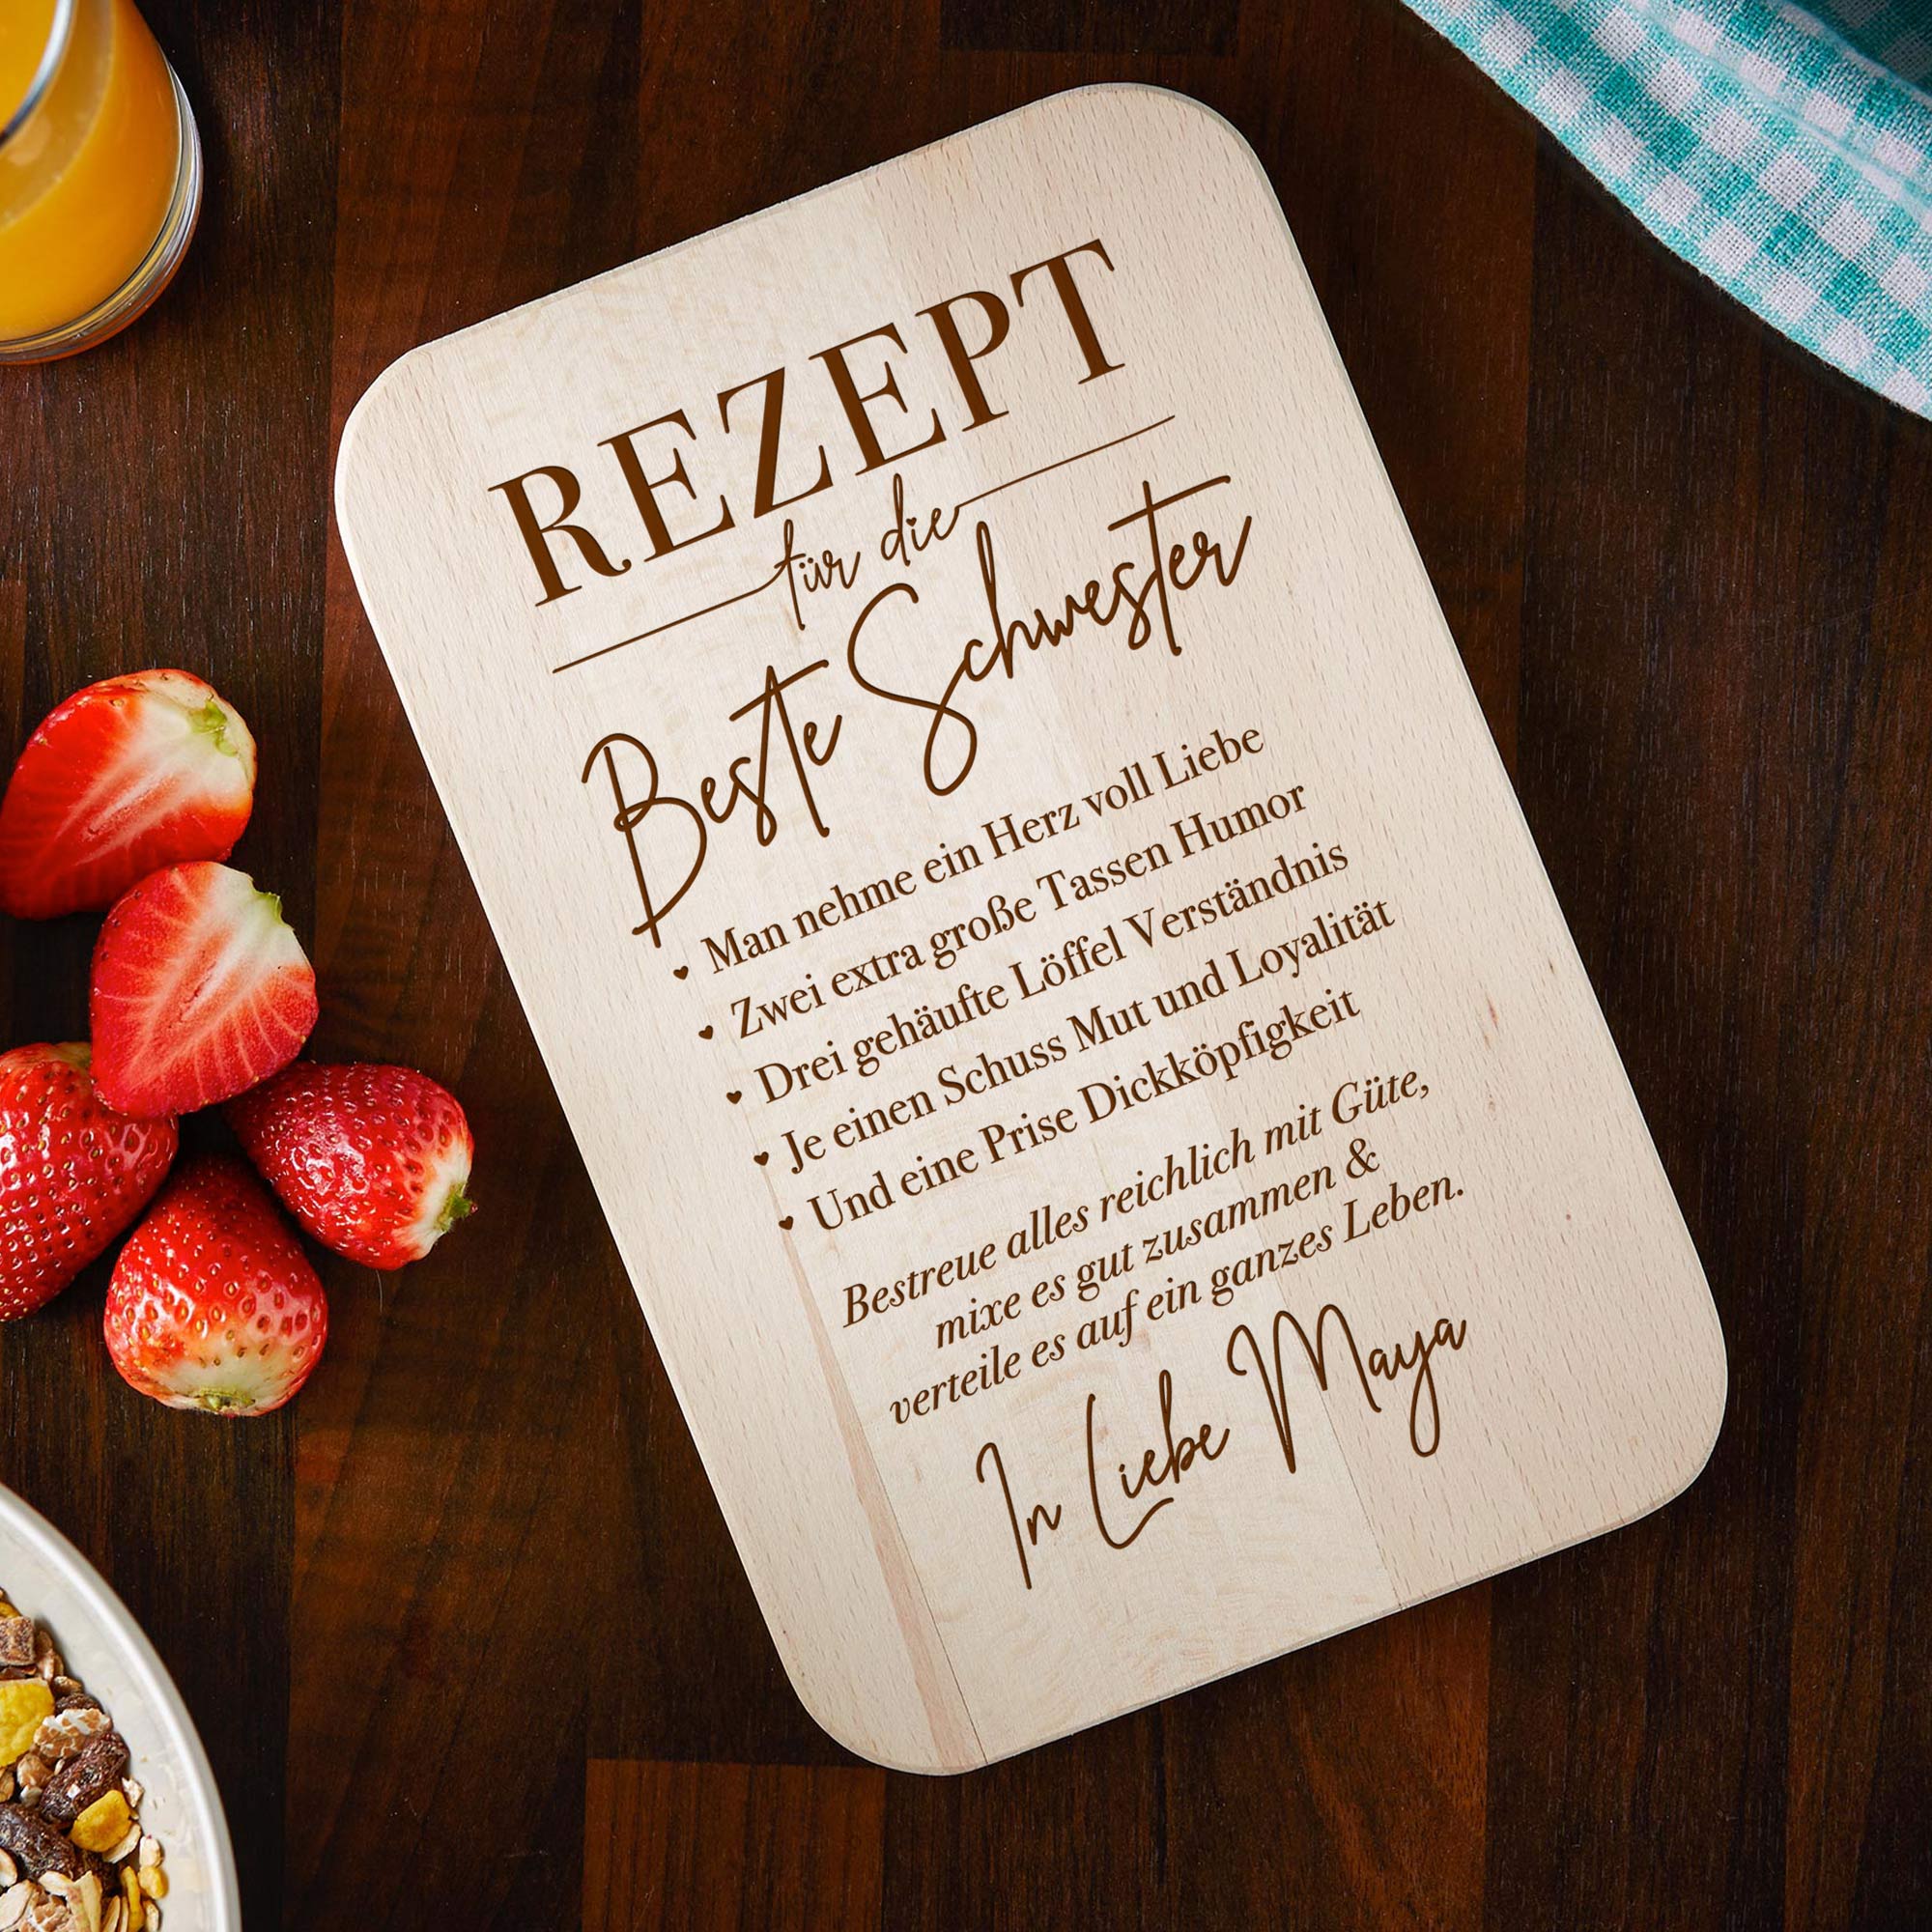 REZEPT
für die
Beste Schwester
Man nehme ein Herz voll Liebe
Zwei extra große Tassen Humor
Drei gehäufte Löffel Verständnis
Je einen Schuss Mut und Loyalität
Und eine Prise Dickköpfigkeit
Bestreue alles reichlich mit Güte,
mixe es gut zusammen &
verteile es auf ein ganzes Leben.
In Liebe Maya